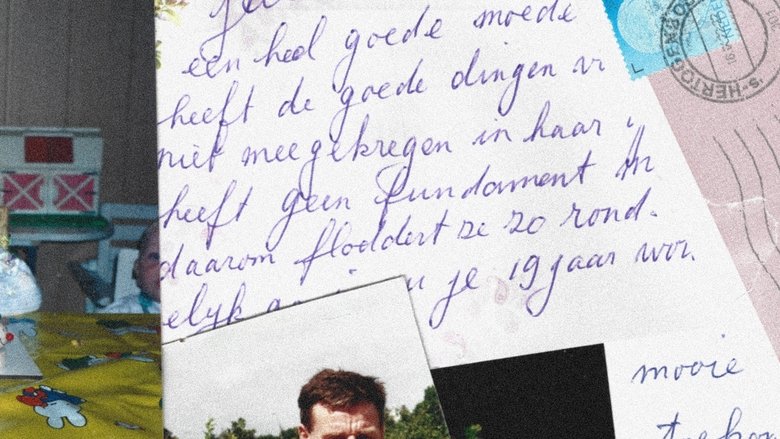 een heel goede moede
heeft de goede dingen vi
niet meegekregen in haar
heeft geen fundament in
daarom floddert ze zo rond.
elijk je 19 jaar wor.
'S-HERTOGENBO
mooie